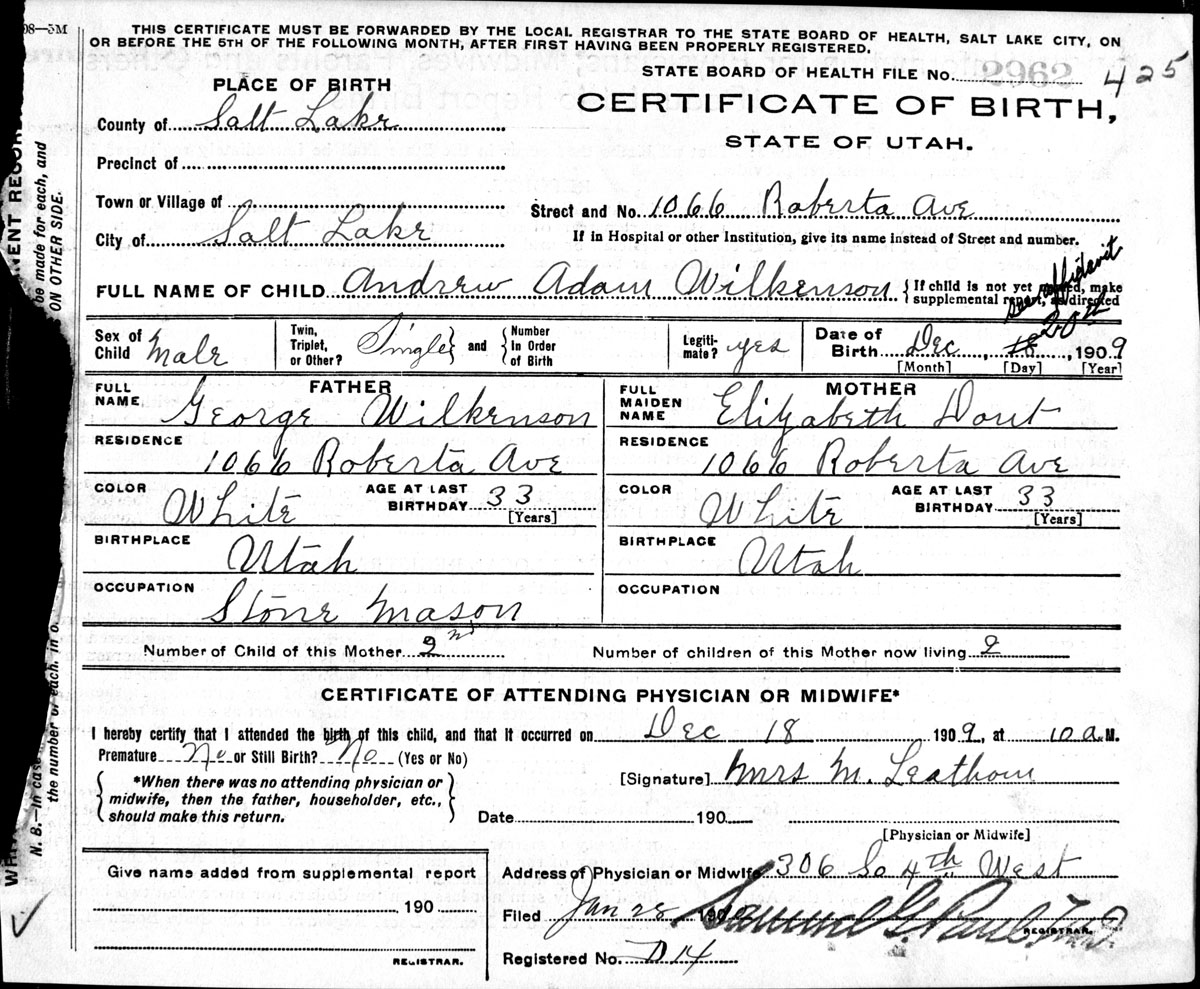 08—5M
THIS CERTIFICATE MUST BE FORWARDED BY THE LOCAL REGISTRAR TO THE STATE BOARD OF HEALTH, SALT LAKE CITY, ON
OR BEFORE THE 5TH OF THE FOLLOWING MONTH, AFTER FIRST HAVING BEEN PROPERLY REGISTERED.
STATE BOARD OF HEALTH FILE No. 2962 425
PLACE OF BIRTH
CERTIFICATE OF BIRTH,
STATE OF UTAH.
County of Salt Lake
Precinct of
Town or Village of
Street and No. 1066 Roberta Ave
City of Salt Lake
If in Hospital or other Institution, give its name instead of Street and number.
see affidavit
FULL NAME OF CHILD Andrew Adam Wilkenson { If child is not yet named, make
supplemental report, as directed
20th
Sex of Child Male
Twin, Triplet, or Other? Single } and { Number In Order of Birth
Legiti-mate? yes
Date of Birth Dec, 18, 1909
[Month] [Day] [Year]
FATHER
FULL NAME George Wilkenson
RESIDENCE
1066 Roberta Ave
COLOR White AGE AT LAST BIRTHDAY 33 [Years]
BIRTHPLACE
Utah
OCCUPATION
Stone Mason
MOTHER
FULL MAIDEN NAME Elizabeth Dout
RESIDENCE
1066 Roberta Ave
COLOR White AGE AT LAST BIRTHDAY 33 [Years]
BIRTHPLACE
Utah
OCCUPATION
Number of Child of this Mother 2nd Number of children of this Mother now living 2
CERTIFICATE OF ATTENDING PHYSICIAN OR MIDWIFE*
I hereby certify that I attended the birth of this child, and that it occurred on Dec 18 1909, at 10 a.M.
Premature No or Still Birth? No (Yes or No)
{ *When there was no attending physician or
midwife, then the father, householder, etc.,
should make this return. }
[Signature] Mrs M. Leathom
Date 190
[Physician or Midwife]
Give name added from supplemental report
190
REGISTRAR.
Address of Physician or Midwife 306 So 4th West
Filed Jan 28 190 Samuel G. Paul, M.D.
REGISTRAR.
Registered No. D 14
NENT RECORD
be made for each, and
ON OTHER SIDE.
N. B.—In case
the number of each, in o